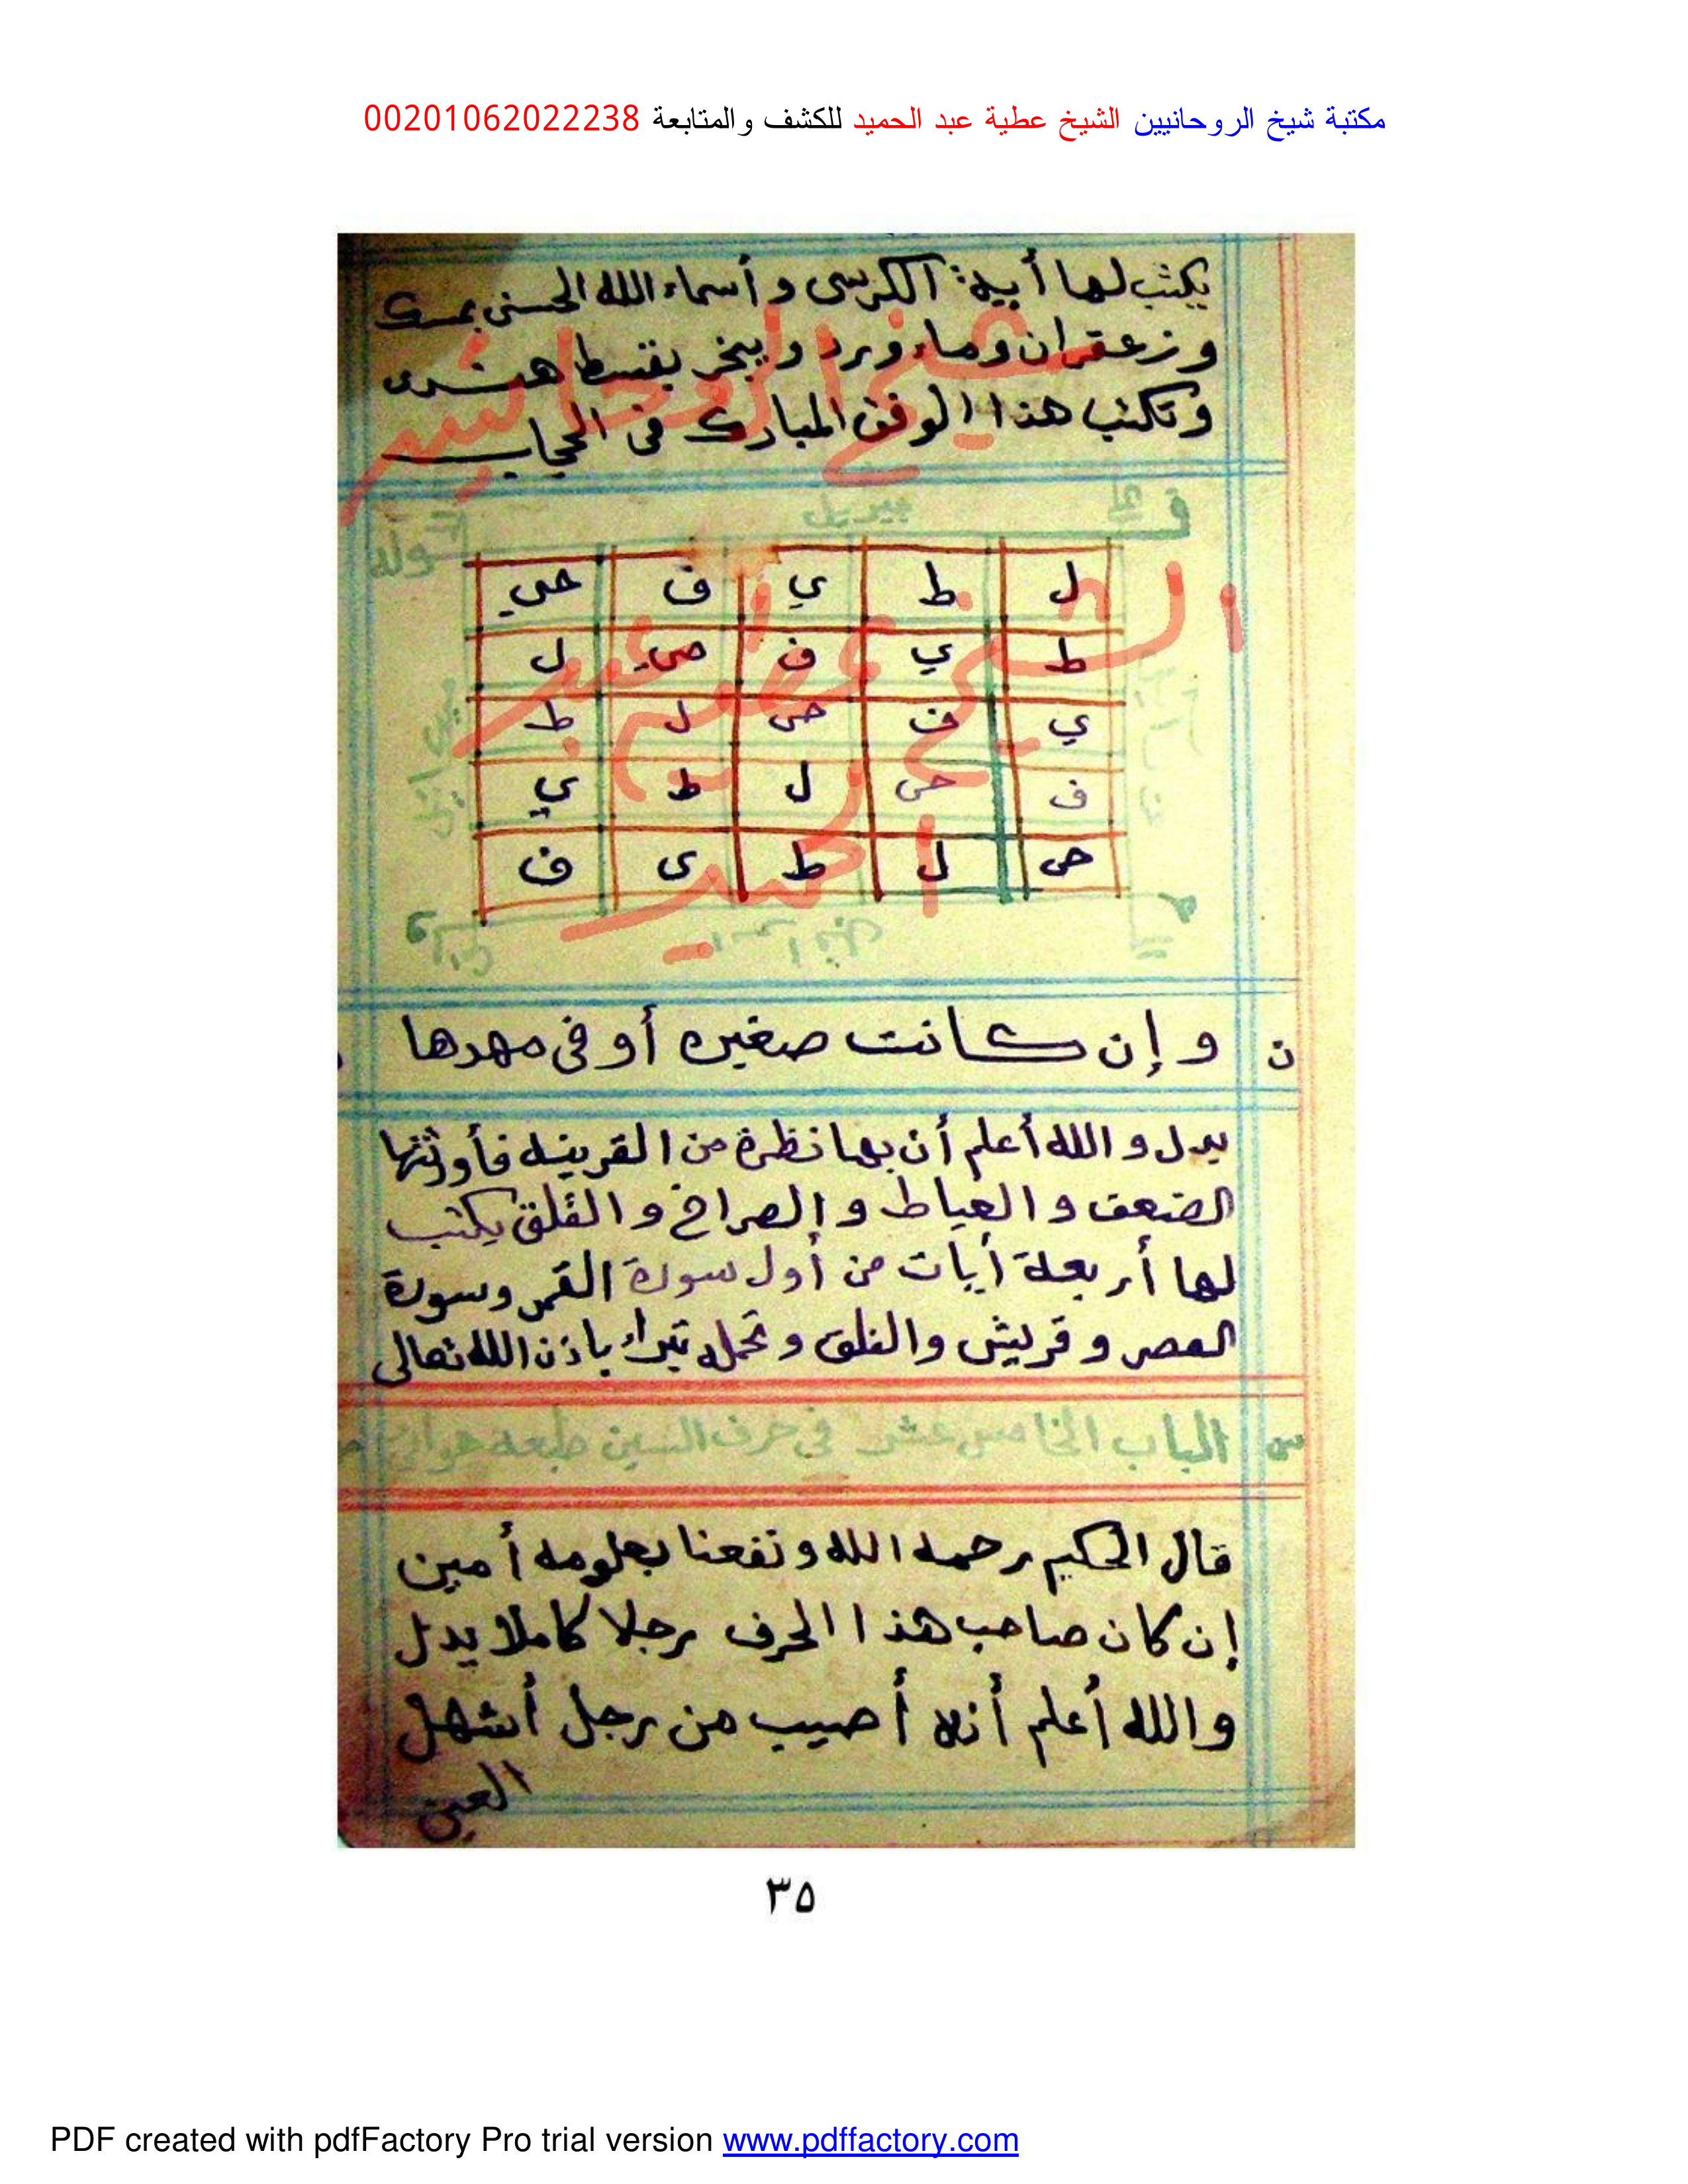 مكتبة شيخ الروحانيين الشيخ عطية عبد الحميد للكشف والمتابعة 00201062022238
يكتب لها أية الكرسى و أسماء الله الحسنى بمسك
و زعفران وماء ورد و يبخر بقسط هندى
وتكتب هذا الوفق المبارك فى الحجاب
ل ط ي ف حي
ط ي ف حي ل
ي ف حى ل ط
ف حى ل ط ي
حى ل ط ى ف
شيخ الروحانيين
الشيخ عطيه عبد
الحميد
ن و إن كانت صغيره أو فى مهدها
يدل و الله أعلم أن بها نظرة من القرينه فأورثتها
الضعف و العياط و الصراخ و القلق يكتب
لها أربعة أيات من أول سورة القمر وسورة
العصر و قريش والفلق و تحمله تبراء باذن الله تعالى
س الباب الخامس عشر في حرف السين طبعه هوائي
قال الحكيم رحمه الله و نفعنا بعلومه أمين
إن كان صاحب هذا الحرف رجلا كاملا يدل
والله أعلم أنه أصيب من رجل أشهل
العين
٣٥
PDF created with pdfFactory Pro trial version www.pdffactory.com